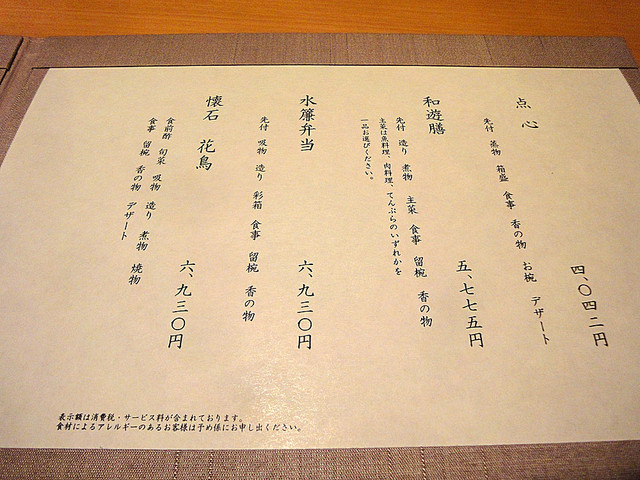 点心
先付　蒸物　箱盛　食事　香の物　お椀　デザート
四、〇四二円
和遊膳
先付　造り　煮物　主菜　食事　留椀　香の物
主菜は魚料理、肉料理、てんぷらのいずれかを
一品お選びください。
五、七七五円
水簾弁当
先付　吸物　造り　彩箱　食事　留椀　香の物
六、九三〇円
懐石　花鳥
食前酢　旬菜　吸物　造り　煮物　焼物
食事　留椀　香の物　デザート
六、九三〇円
表示額は消費税・サービス料が含まれております。
食材によるアレルギーのあるお客様は予め係にお申し出ください。